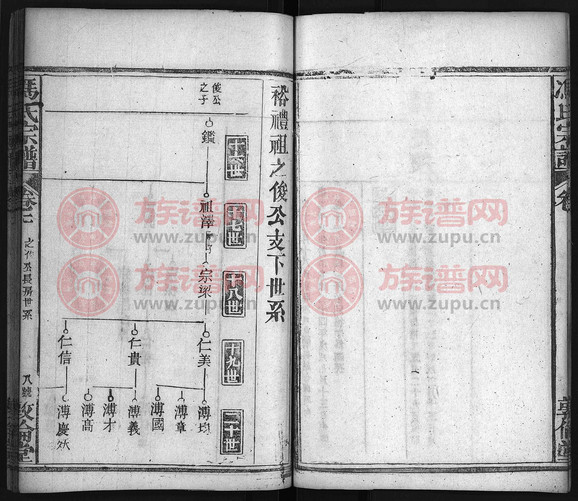 馮氏宗譜
卷
敦倫堂
裕禮祖之俊公支下世系
十六世
十七世
十八世
十九世
二十世
俊公之子
鑑
祖澤
宗梁
仁美
仁貴
仁信
溥均
溥章
溥國
溥義
溥才
溥高
溥慶
馮氏宗譜
敦倫堂
族谱网
www.zupu.cn
族谱网
www.zupu.cn
族谱网
www.zupu.cn
族谱网
www.zupu.cn